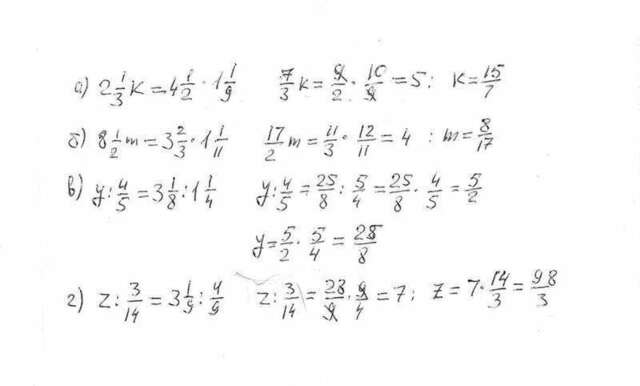 а) 2 1/3 k = 4 1/2 · 1 1/9   7/3 k = 9/2 · 10/9 = 5; k = 15/7
б) 8 1/2 m = 3 2/3 · 1 1/11   17/2 m = 11/3 · 12/11 = 4 ; m = 8/17
в) y : 4/5 = 3 1/8 : 1 1/4   y : 4/5 = 25/8 : 5/4 = 25/8 · 4/5 = 5/2
y = 5/2 · 5/4 = 25/8
г) z : 3/14 = 3 1/9 : 4/9   z : 3/14 = 28/9 · 9/4 = 7; z = 7 · 14/3 = 98/3